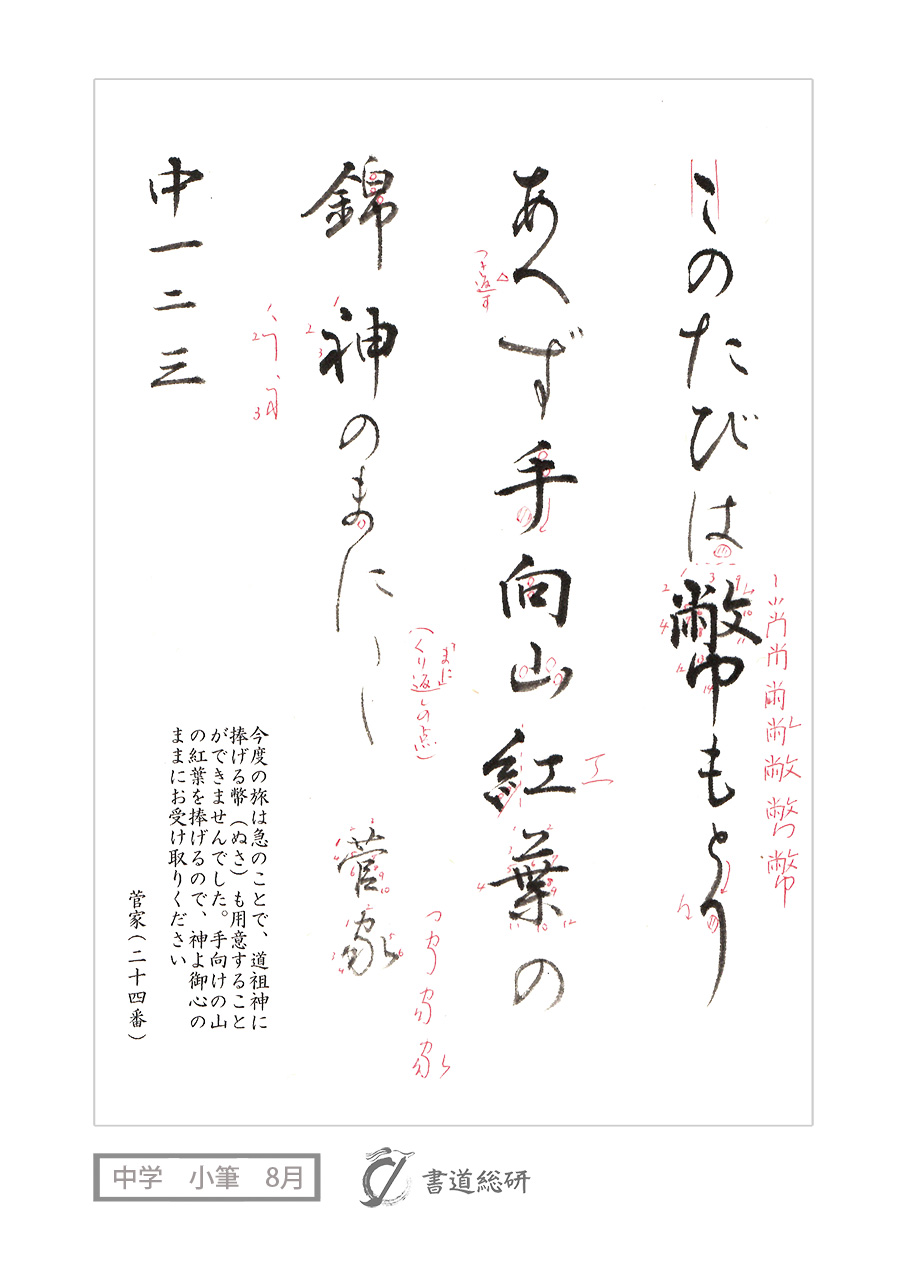 このたびは幣もとり
あへず手向山紅葉の
つき返す
錦神のまに〱
「まに」
(くり返しの点)
菅家
中一二三
今度の旅は急のことで、道祖神に
捧げる幣(ぬさ)も用意すること
ができませんでした。手向けの山
の紅葉を捧げるので、神よ御心の
ままにお受け取りください
菅家(二十四番)
中学 小筆 8月
書道総研